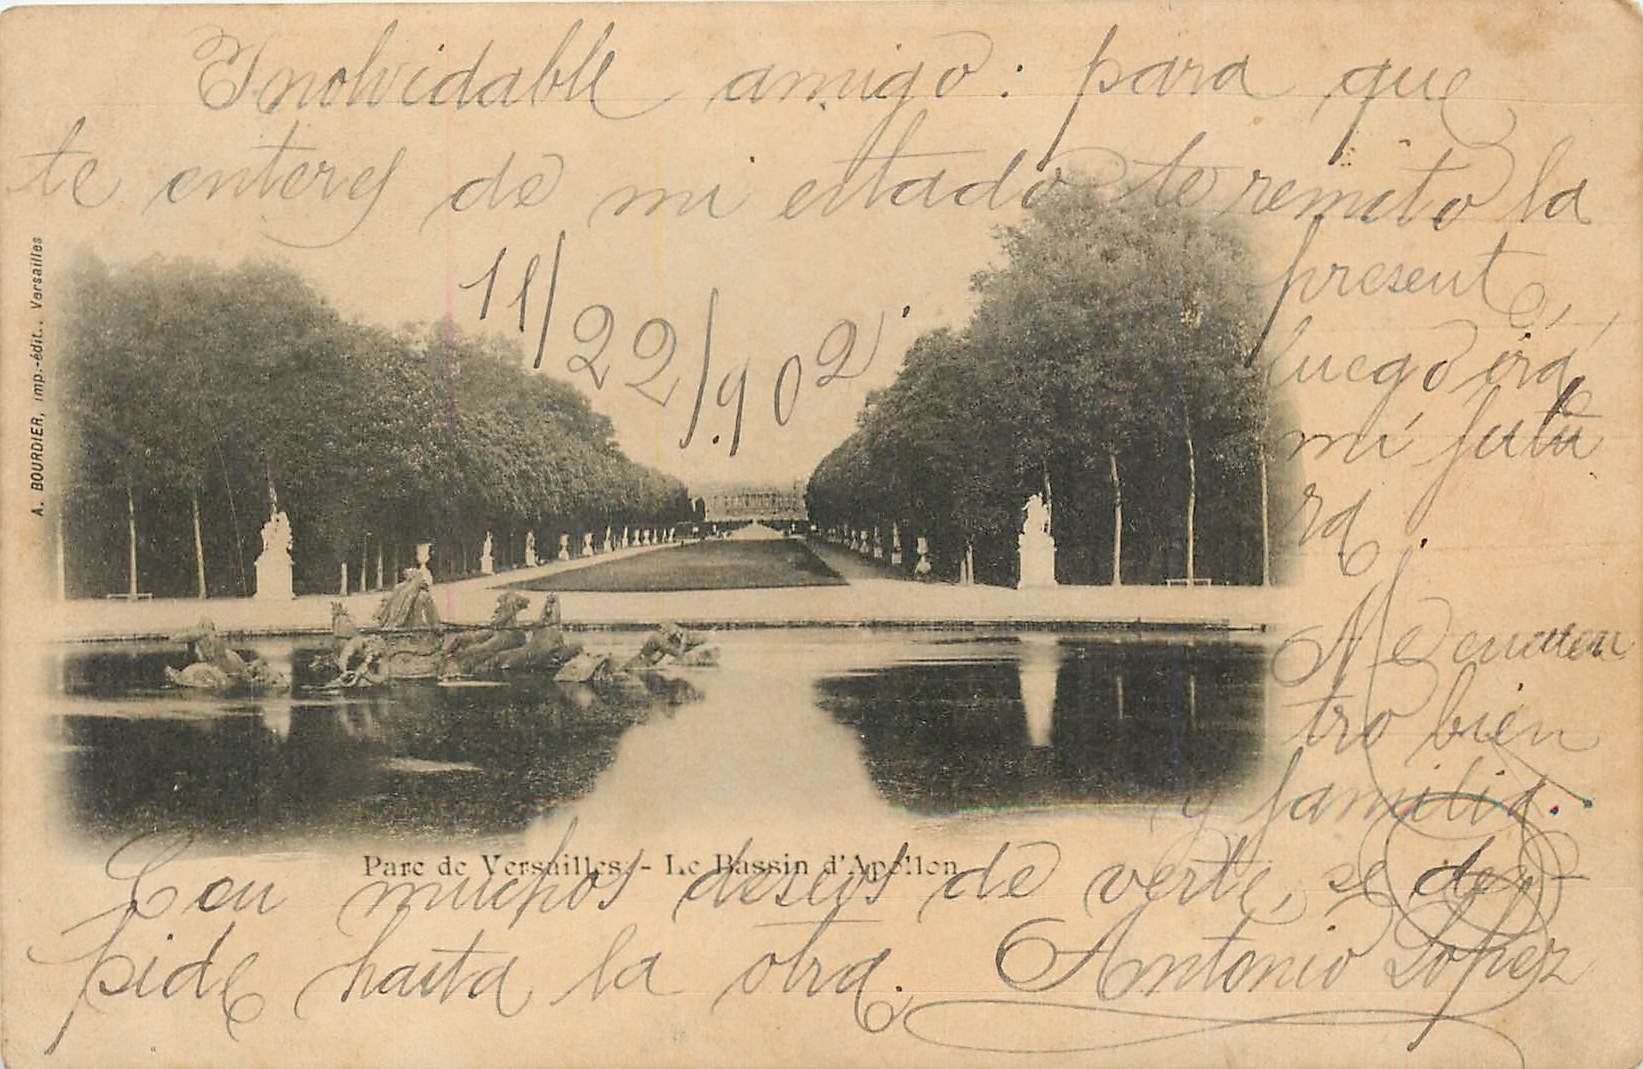 Inolvidable amigo: para que
te enteres de mi estado te remito la
presente,
luego irá
mi futu
ra.
11/22/902.
Me encuen
tro bien
y familia.
Parc de Versailles. - Le Bassin d'Apollon
Con muchos deseos de verte, se des-
pide hasta la otra. Antonio Lopez
A. BOURDIER, imp.-édit., Versailles